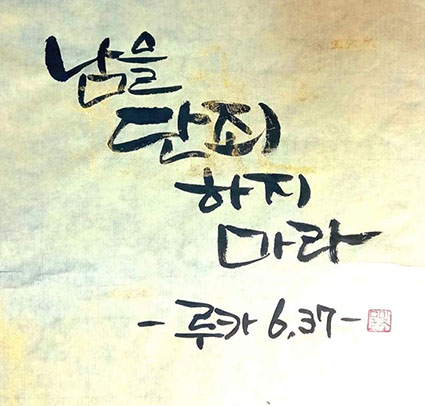 남을
단죄
하지
마라
- 루카 6,37-